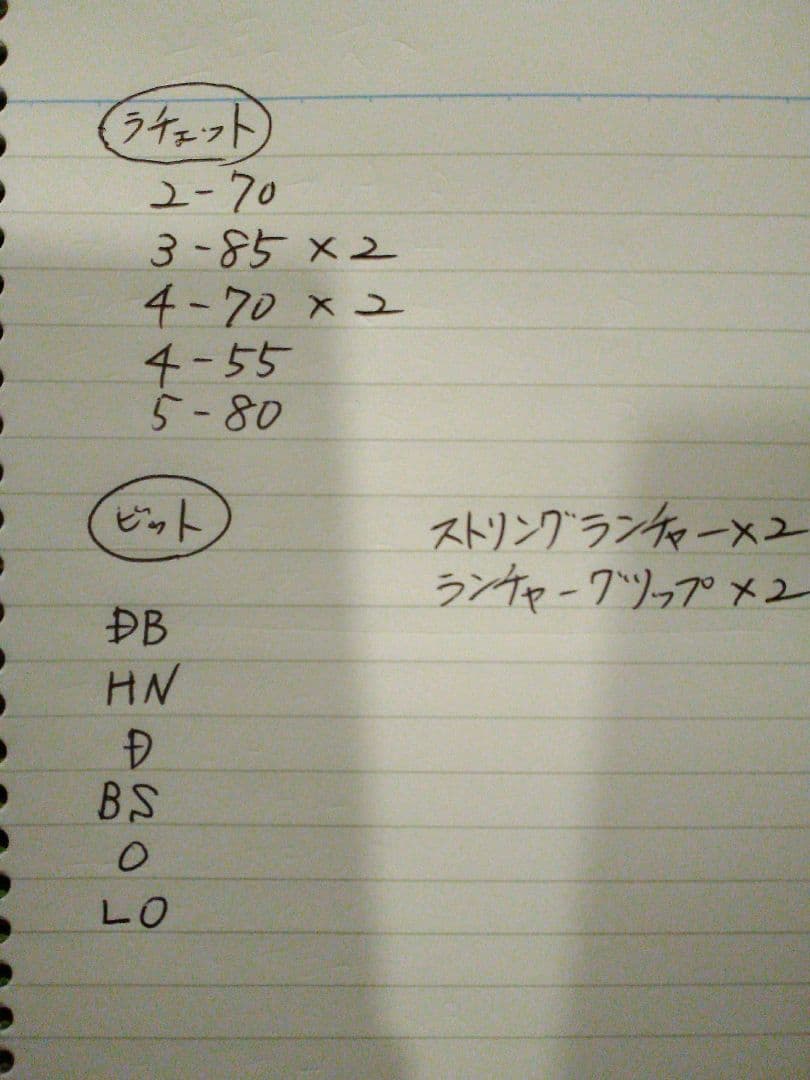 ラチェット
2-70
3-85 ×2
4-70 ×2
4-55
5-80
ビット
DB
HN
D
BS
O
LO
ストリングランチャー×2
ランチャーグリップ×2